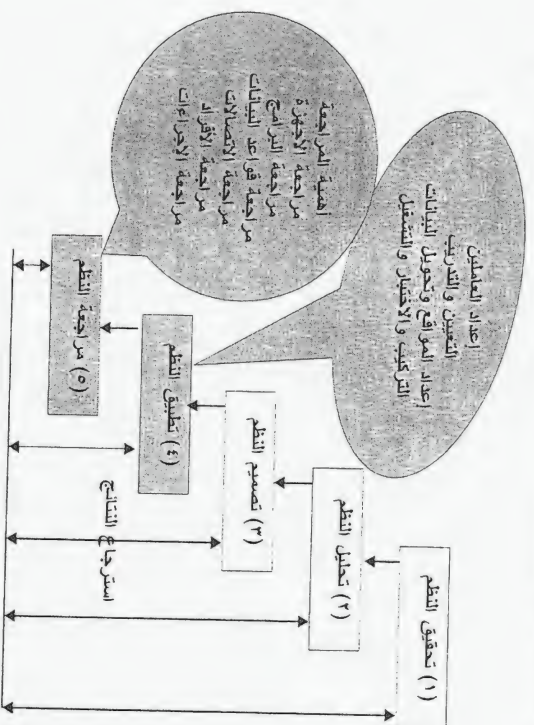 (١) تحقيق النظم
(٢) تحليل النظم
(٣) تصميم النظم
(٤) تطبيق النظم
(٥) مراجعة النظم
استرجاع النتائج
إعداد العاملين
التعيين والتدريب
إعداد المواقع وتحويل البيانات
التركيب والاختبار والتشغيل
أهمية المراجعة
مراجعة الأجهزة
مراجعة البرامج
مراجعة قواعد البيانات
مراجعة الاتصالات
مراجعة الأفراد
مراجعة الإجراءات